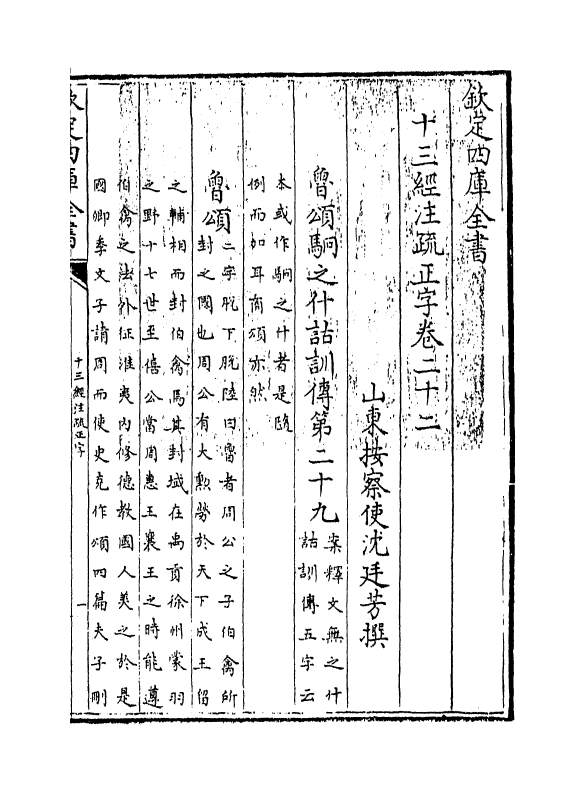 欽定四庫全書
十三經注疏正字卷二十二
山東按察使沈廷芳撰
魯頌駉之什詁訓傳第二十九
案釋文無之什
詁訓傳五字云
本或作駉之什者是隨
例而加耳商頌亦然
魯頌
二字脱下脱陸曰魯者周公之子伯禽所
封之國也周公有大勲勞於天下成王留
之輔相而封伯禽焉其封域在禹貢徐州蒙羽
之野十七世至僖公當周惠王襄王之時能遵
伯禽之法外征淮夷内修德教國人美之於是
國卿季文子請周而使史克作頌四篇夫子刪
欽定四庫全書
十三經注疏正字
一